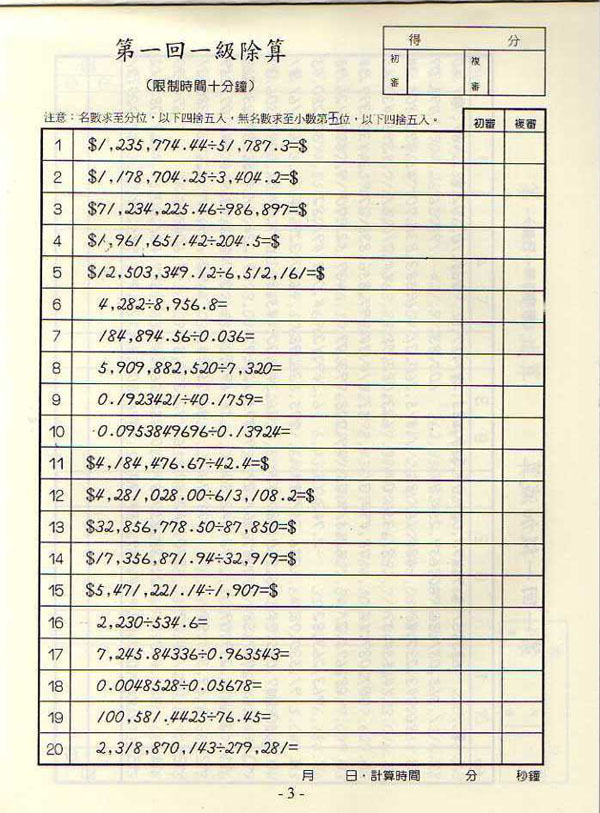 得 分
初審 複審
第一回一級除算
(限制時間十分鐘)
注意：名數求至分位，以下四捨五入，無名數求至小數第五位，以下四捨五入。
初審 複審
1 $1,235,774.44÷51,787.3=$
2 $1,178,704.25÷3,404.2=$
3 $71,234,225.46÷986,897=$
4 $1,961,651.42÷204.5=$
5 $12,503,349.12÷6,512,161=$
6 4,282÷8,956.8=
7 184,894.56÷0.036=
8 5,909,882,520÷7,320=
9 0.1923421÷40.1759=
10 0.0953849696÷0.13924=
11 $4,184,476.67÷42.4=$
12 $4,281,028.00÷613,108.2=$
13 $32,856,778.50÷87,850=$
14 $17,356,871.94÷32,919=$
15 $5,471,221.14÷1,907=$
16 2,230÷534.6=
17 7,245.84336÷0.963543=
18 0.0048528÷0.05678=
19 100,581.4425÷76.45=
20 2,318,870,143÷279,281=
月 日·計算時間 分 秒鐘
- 3 -